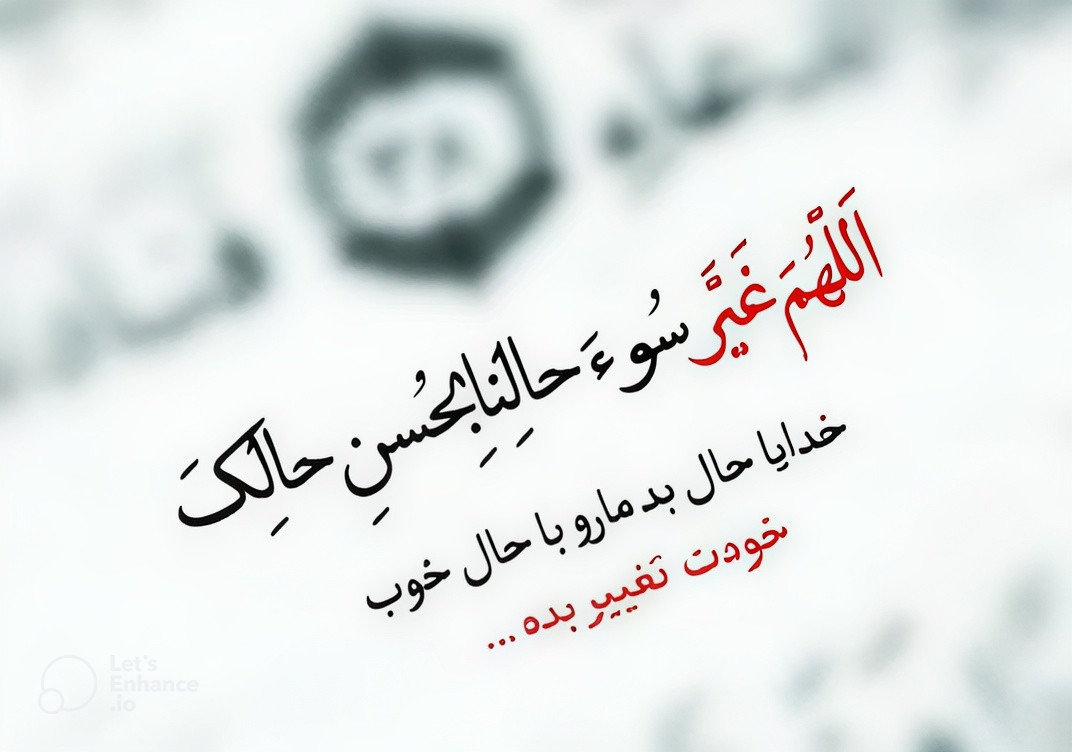 اَللّهُمَ غَیَّرَّ سُوءَ حالِنِا بِحُسنِ حالِکَ
خدایا حال بد مارو با حال خوب
خودت تغییر بده...
Let's
Enhance
.io